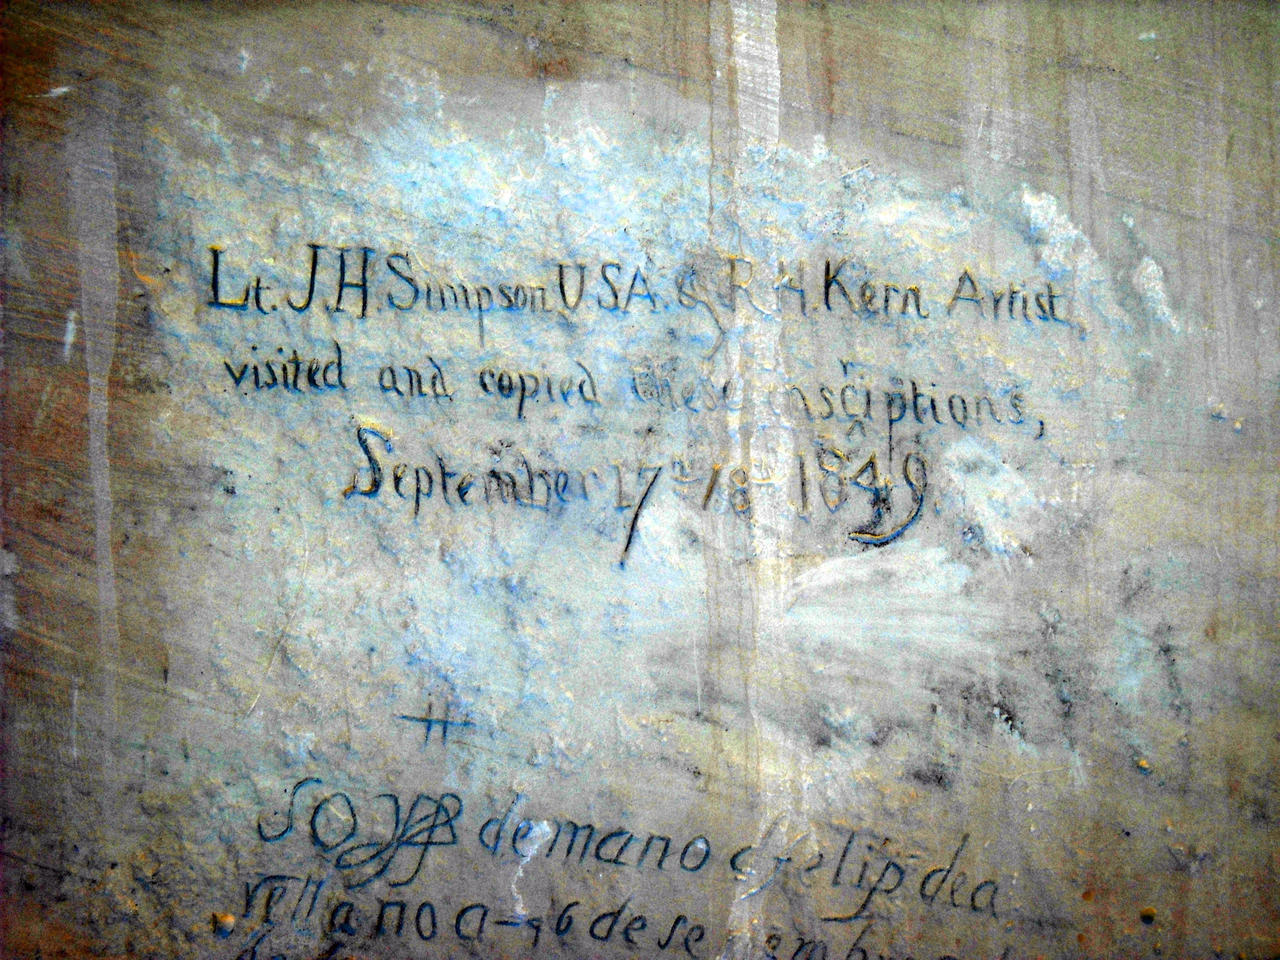 Lt. J.H. Simpson U.S.A. & R.H. Kern Artist,
visited and copied these insciptions,
r
September 17th 18th 1849.
Soy de mano de felipe dea
rellano a-16 de setiembre